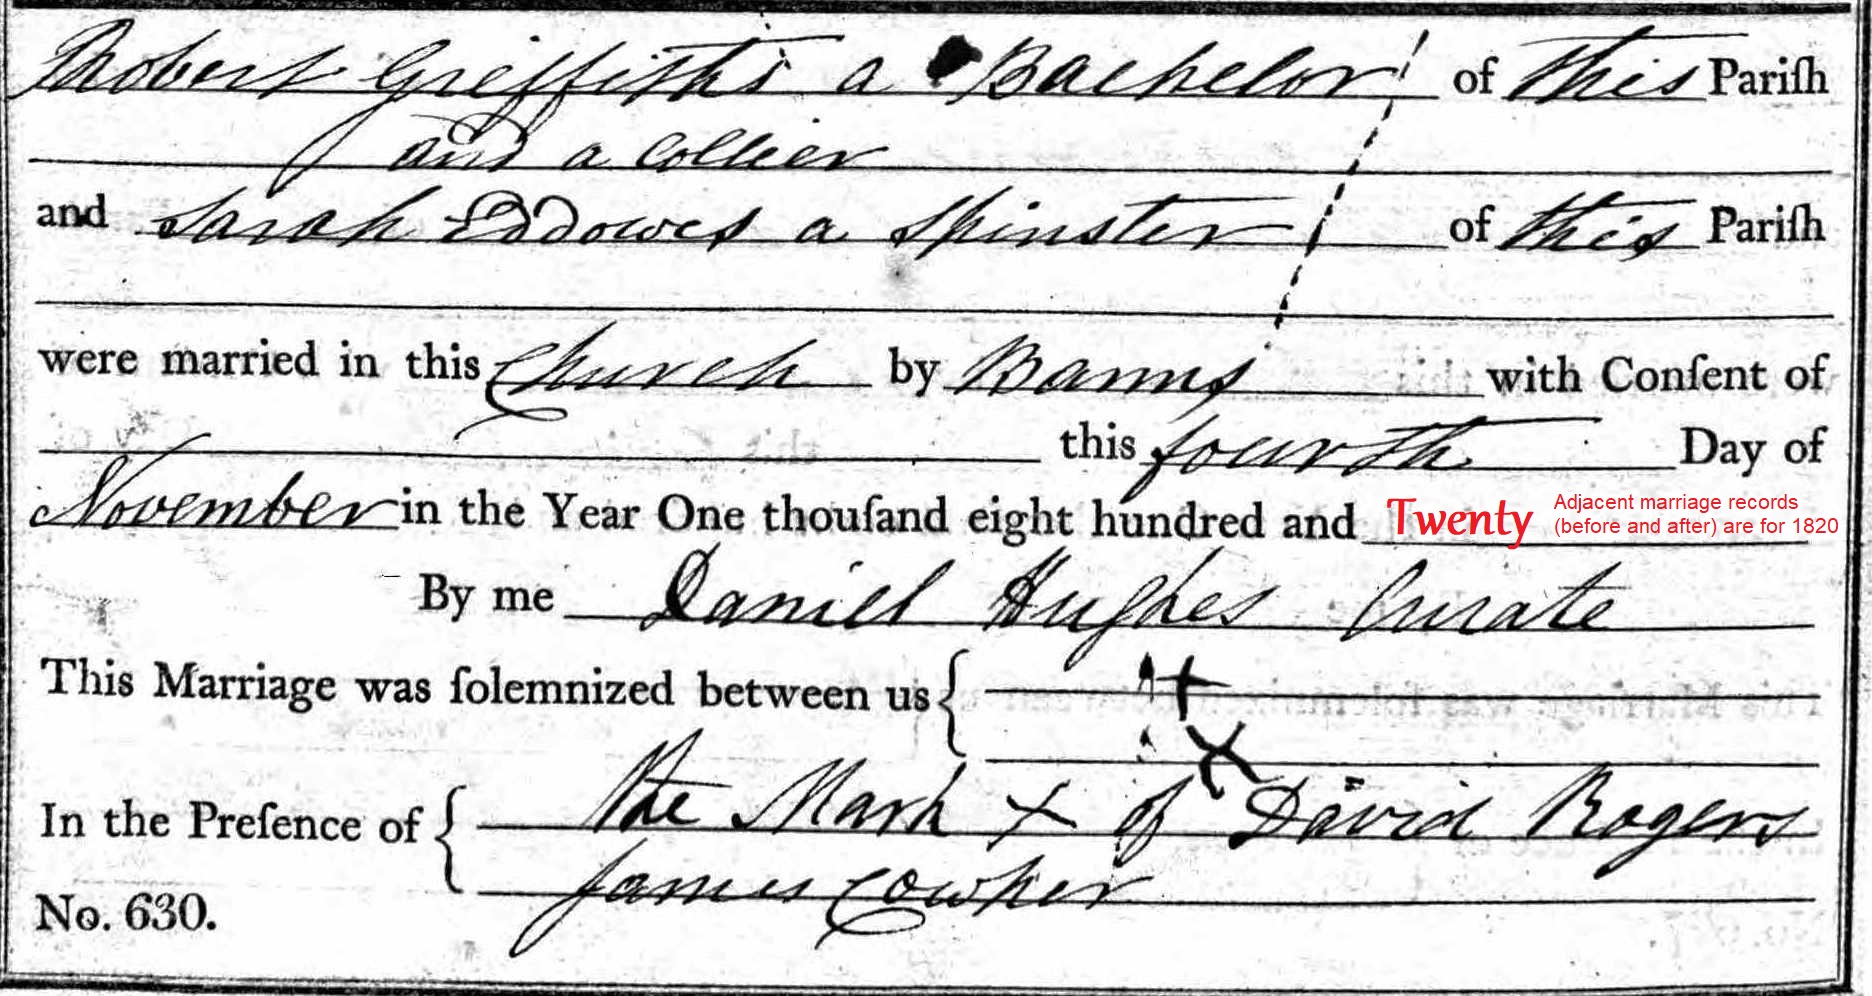 Robert Griffiths a Bachelor of this Pariſh
and a Collier
and Sarah Eddowes a Spinster of this Pariſh
were married in this Church by Banns with Conſent of
this fourth Day of
November in the Year One thouſand eight hundred and Twenty Adjacent marriage records
(before and after) are for 1820
By me Daniel Hughes Curate
This Marriage was ſolemnized between us { +
X
In the Preſence of { the Mark X of David Rogers
James Cowper
No. 630.